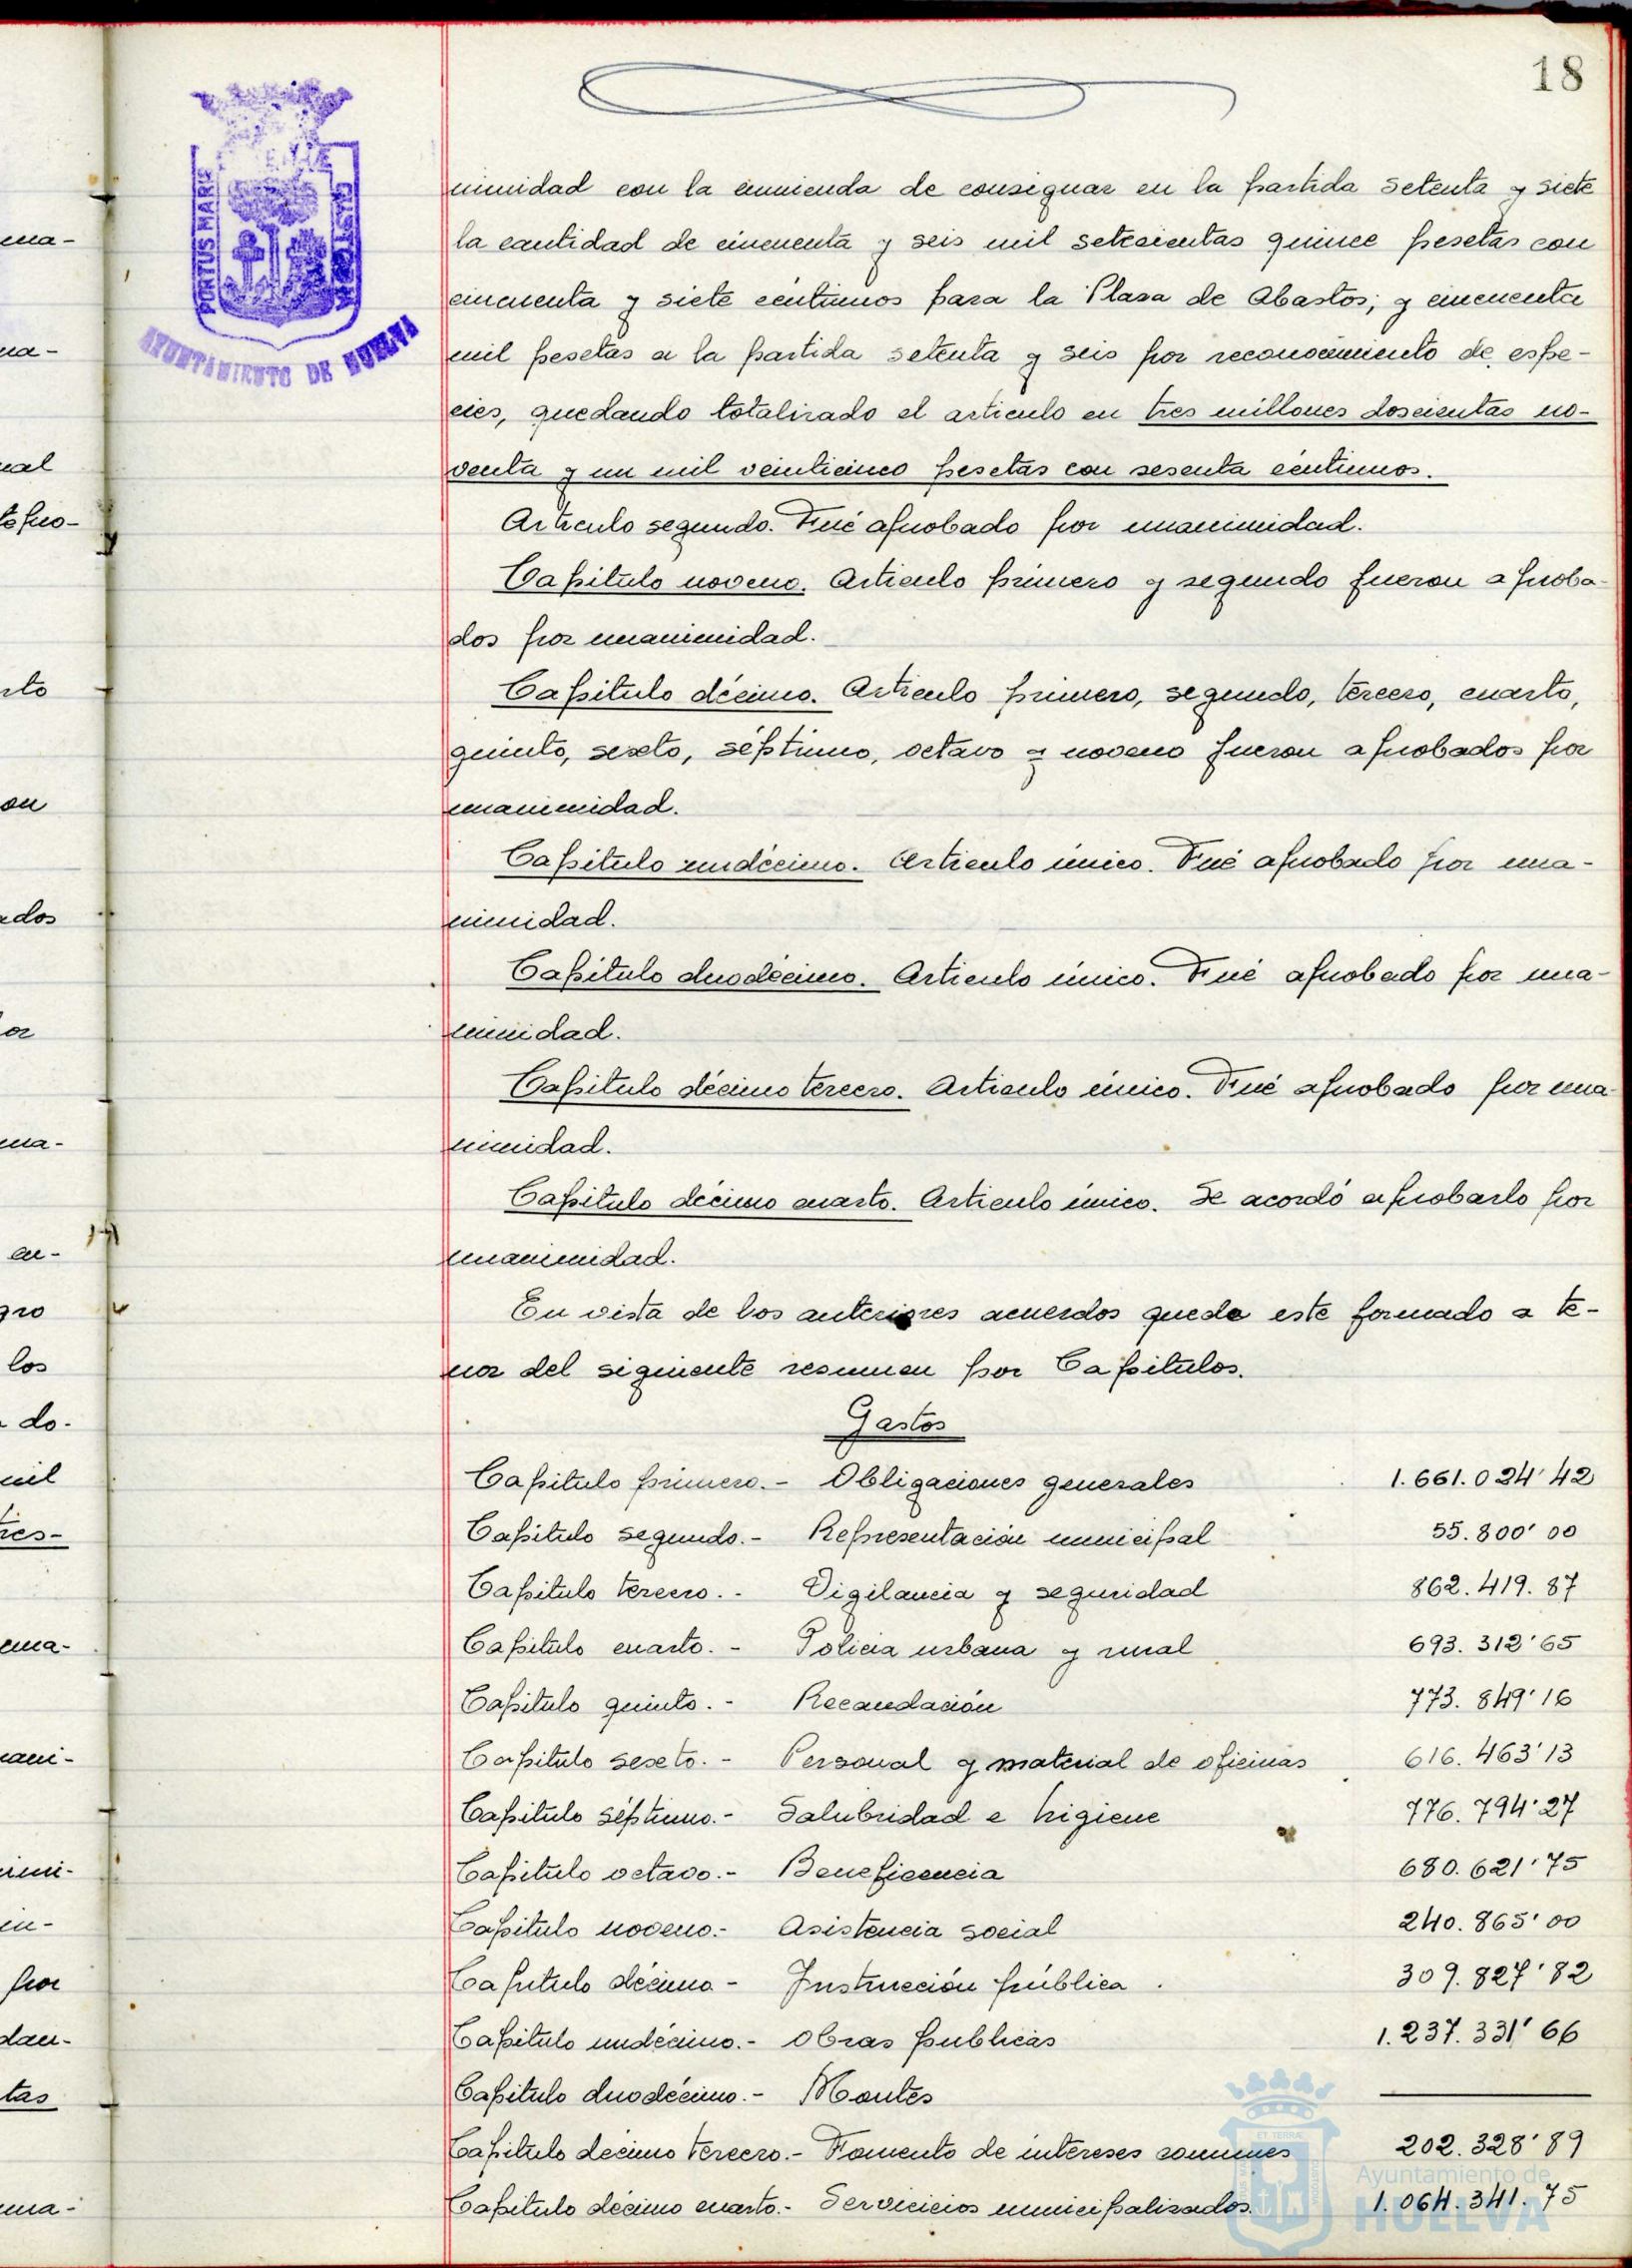 18
PORTUS MARIS
AYUNTAMIENTO DE HUELVA
nimidad con la enmienda de consignar en la partida setenta y siete
la cantidad de cincuenta y seis mil setecientas quince pesetas con
cincuenta y siete céntimos para la Plaza de Abastos; y cincuenta
mil pesetas a la partida setenta y seis por reconocimiento de espe-
cies, quedando totalizado el articulo en tres millones doscientas no-
venta y un mil veinticinco pesetas con sesenta céntimos.
Articulo segundo. Fué aprobado por unanimidad.
Capitulo noveno. Articulo primero y segundo fueron aproba-
dos por unanimidad.
Capitulo décimo. Articulo primero, segundo, tercero, cuarto,
quinto, sexto, séptimo, octavo y noveno fueron aprobados por
unanimidad.
Capitulo undécimo. Articulo único. Fué aprobado por una-
nimidad.
Capitulo duodécimo. Articulo único. Fué aprobado por una-
nimidad.
Capitulo décimo tercero. Articulo único. Fué aprobado por una-
nimidad.
Capitulo décimo cuarto. Articulo único. Se acordó aprobarlo por
unanimidad.
En vista de los anteriores acuerdos queda este formado a te-
nor del siguiente resumen por Capitulos.
Gastos
Capitulo primero.- Obligaciones generales 1.661.024'42
Capitulo segundo.- Representación municipal 55.800'00
Capitulo tercero.- Vigilancia y seguridad 862.419.87
Capitulo cuarto.- Policia urbana y rural 693.312'65
Capitulo quinto.- Recaudación 773.849'16
Capitulo sexto.- Personal y material de oficinas 616.463'13
Capitulo séptimo.- Salubridad e higiene 776.794'27
Capitulo octavo.- Beneficencia 680.621'75
Capitulo noveno.- Asistencia social 240.865'00
Capitulo décimo - Instrucción pública 309.827'82
Capitulo undécimo.- Obras publicas 1.237.331'66
Capitulo duodécimo.- Montes
Capitulo decimo tercero.- Fomento de intereses comunes 202.328'89
Capitulo décimo cuarto.- Servicicios municipalizados. 1.064.341.75
Ayuntamiento de
HUELVA